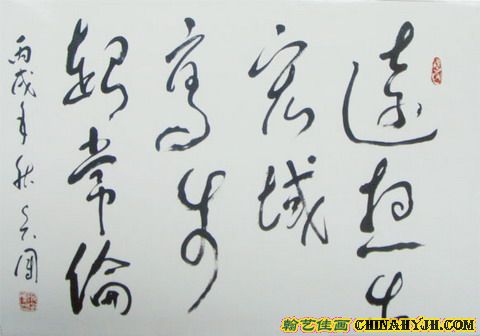 遠想出
宏域
高步
超常倫
丙戌年秋
翰艺佳画 CHINAHYJH.COM